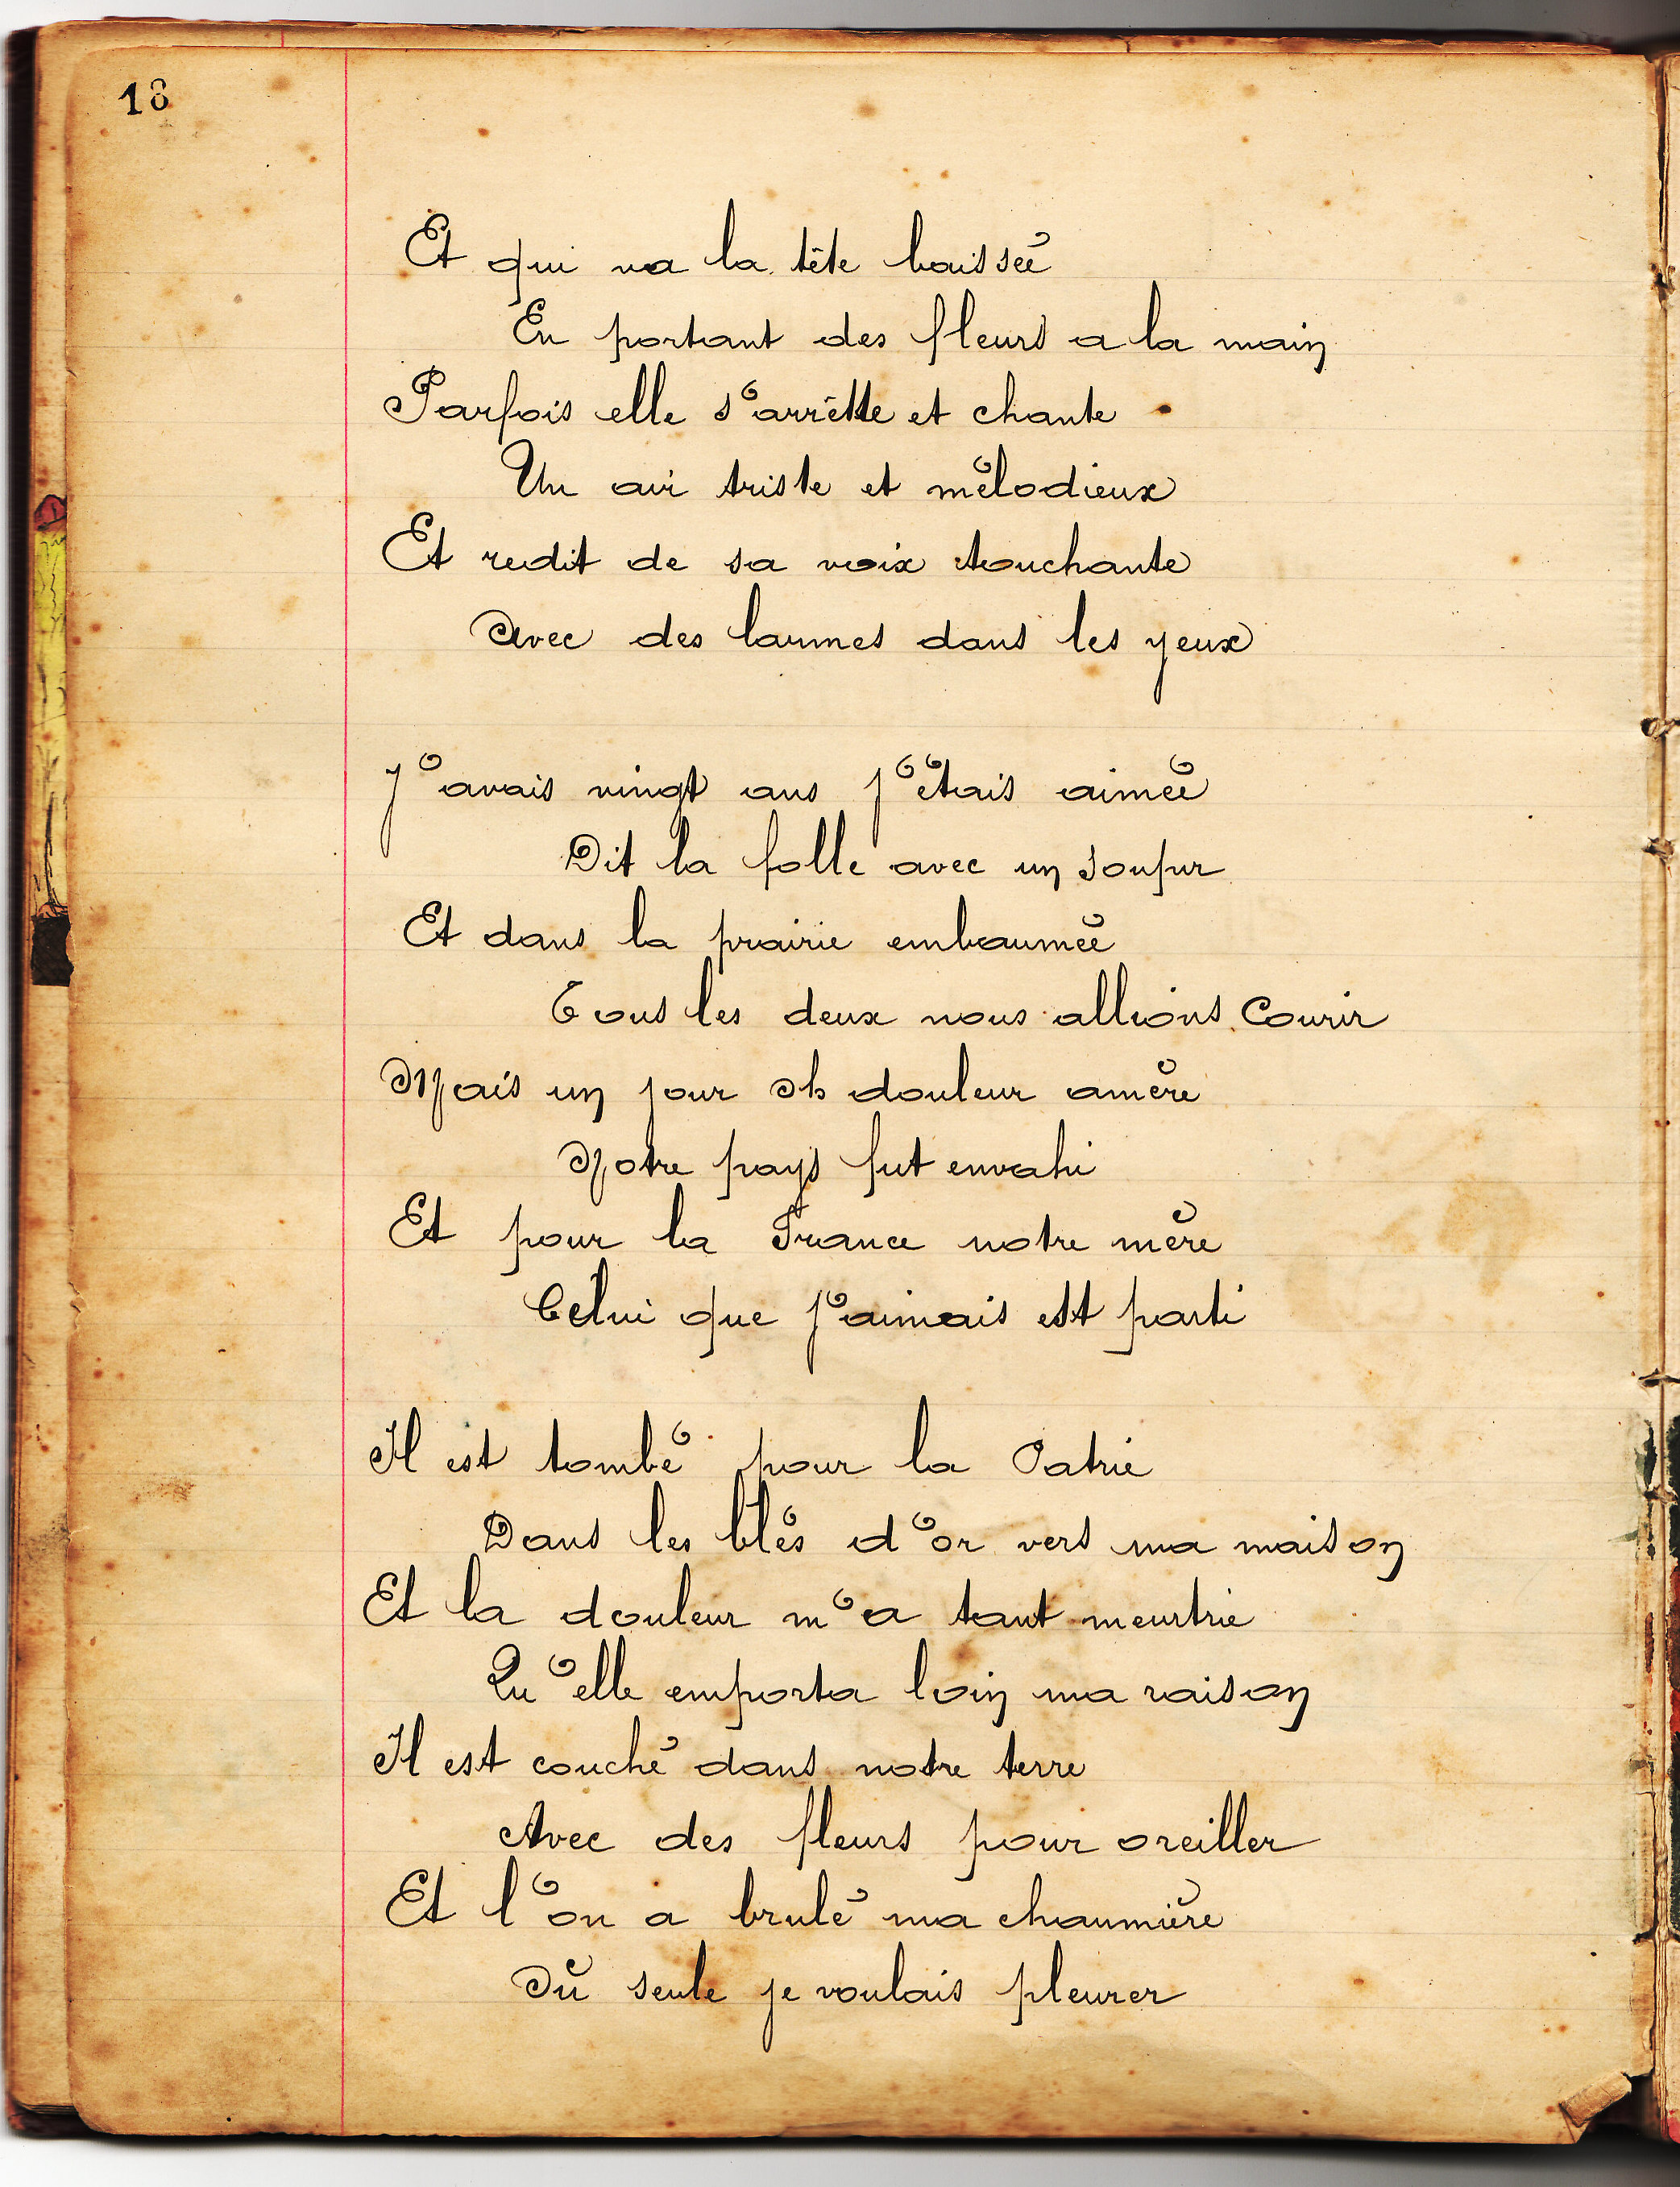 18
Et qui va la tête baissée
En portant des fleurs a la main
Parfois elle s'arrêtte et chante
Un air triste et mélodieux
Et redit de sa voix touchante
Avec des larmes dans les yeux
J'avais vingt ans j'étais aimée
Dit la folle avec un soupir
Et dans la prairie embaumée
Tous les deux nous allions Courir
Mais un jour Oh douleur amère
Notre pays fut envahi
Et pour la France notre mère
Celui que j'aimais est parti
Il est tombé pour la Patrie
Dans les blés d'or vers ma maison
Et la douleur m'a tant meurtrie
Qu'elle emporta loin ma raison
Il est couché dans notre terre
Avec des fleurs pour oreiller
Et l'on a brulé ma chaumière
Où seule je voulais pleurer